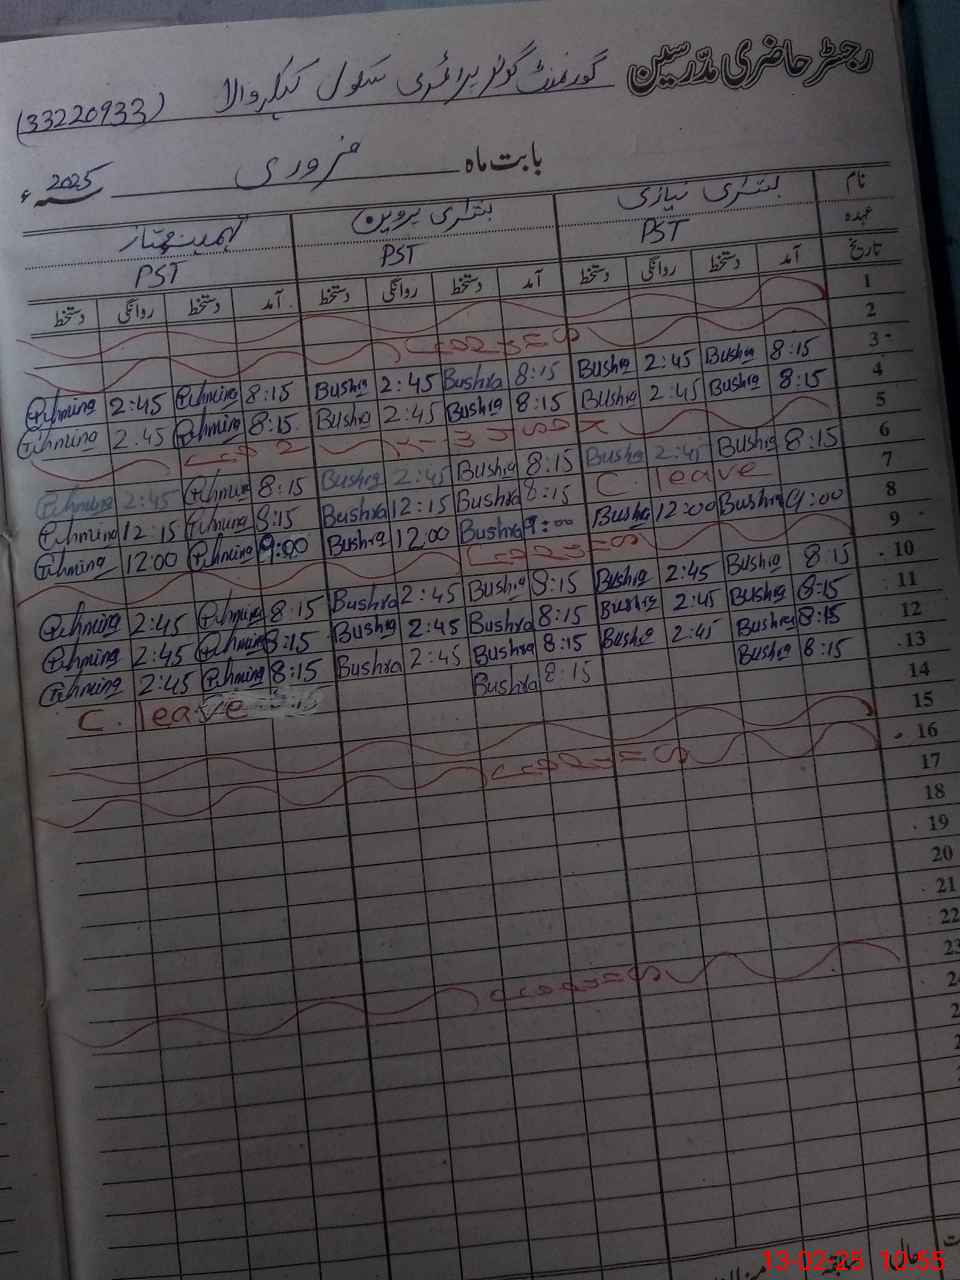 رجسٹر حاضری مدرسین گورنمنٹ گرلز پرائمری سکول ککروالا (33220933)
بابت ماہ فروری سنہ 2025ء
نام بشریٰ نیازی بشریٰ پروین تہمینہ ممتاز
عہدہ PST PST PST
تاریخ آمد دستخط روانگی دستخط آمد دستخط روانگی دستخط آمد دستخط روانگی دستخط
1
2
3 8:15 Bushra 2:45 Bushra 8:15 Bushra 2:45 Bushra 8:15 Tehmina 2:45 Tehmina
4 8:15 Bushra 2:45 Bushra 8:15 Bushra 2:45 Bushra 8:15 Tehmina 2:45 Tehmina
5
6 8:15 Bushra 2:45 Bushra 8:15 Bushra 2:45 Bushra 8:15 Tehmina 2:45 Tehmina
7 C. leave 8:15 Bushra 12:15 Bushra 8:15 Tehmina 12:15 Tehmina
8 9:00 Bushra 12:00 Bushra 9:00 Bushra 12:00 Bushra 9:00 Tehmina 12:00 Tehmina
9
10 8:15 Bushra 2:45 Bushra 8:15 Bushra 2:45 Bushra 8:15 Tehmina 2:45 Tehmina
11 8:15 Bushra 2:45 Bushra 8:15 Bushra 2:45 Bushra 8:15 Tehmina 2:45 Tehmina
12 8:15 Bushra 2:45 Bushra 8:15 Bushra 2:45 Bushra 8:15 Tehmina 2:45 Tehmina
13 8:15 Bushra 8:15 Bushra C. leave
14
15
16
17
18
19
20
21
22
23
13-02-25 10:55